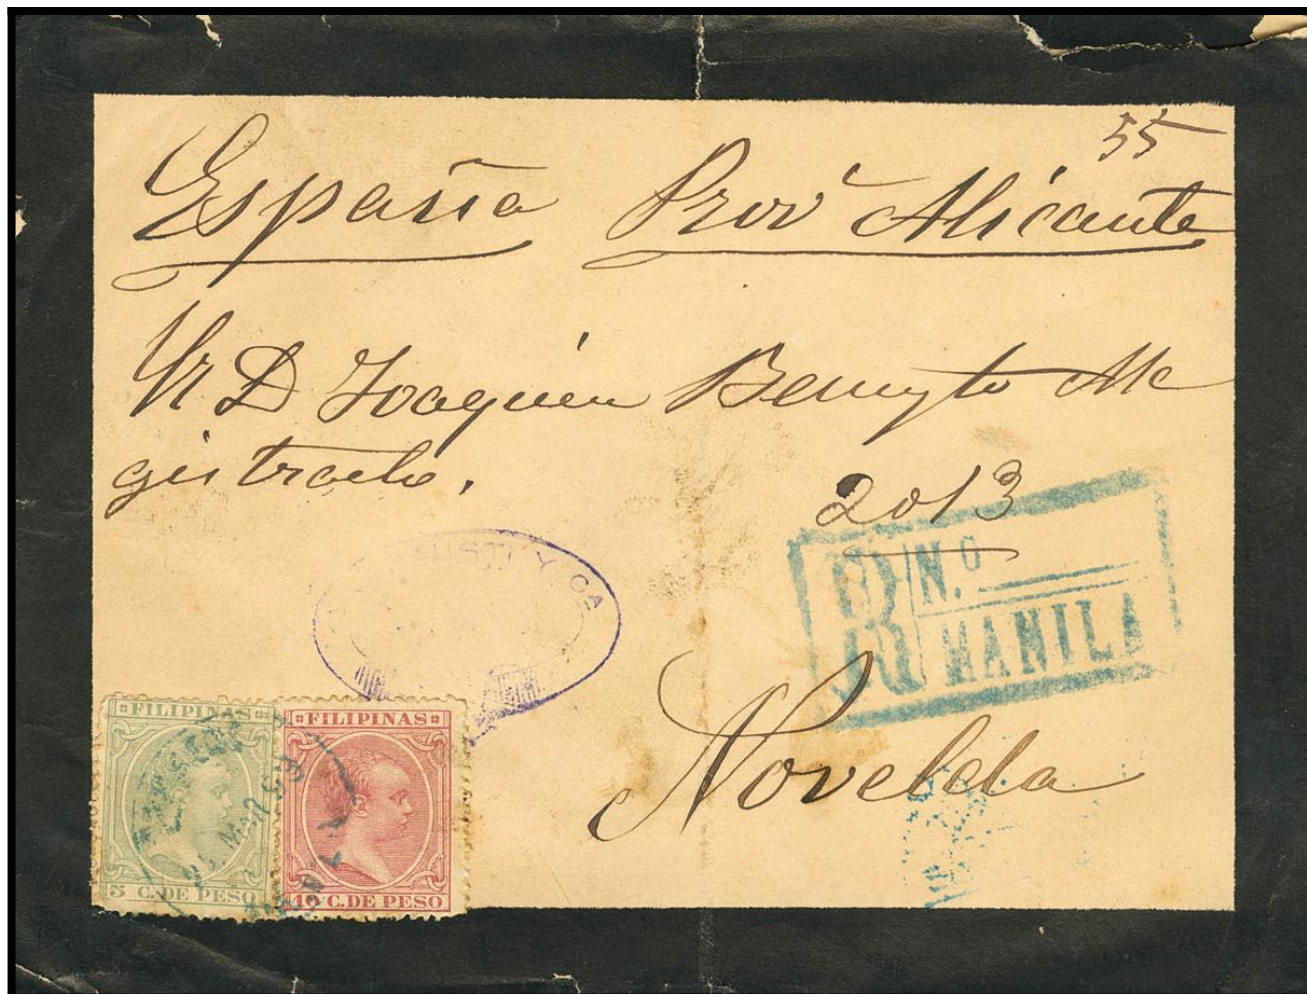 55
España Prov.ª Alicante
Sr D Joaquin Beneyto Ma
gistrado.
2013
R N.º
MANILA
Y CA
Novelda
FILIPINAS
5 C. DE PESO
FILIPINAS
10 C. DE PESO